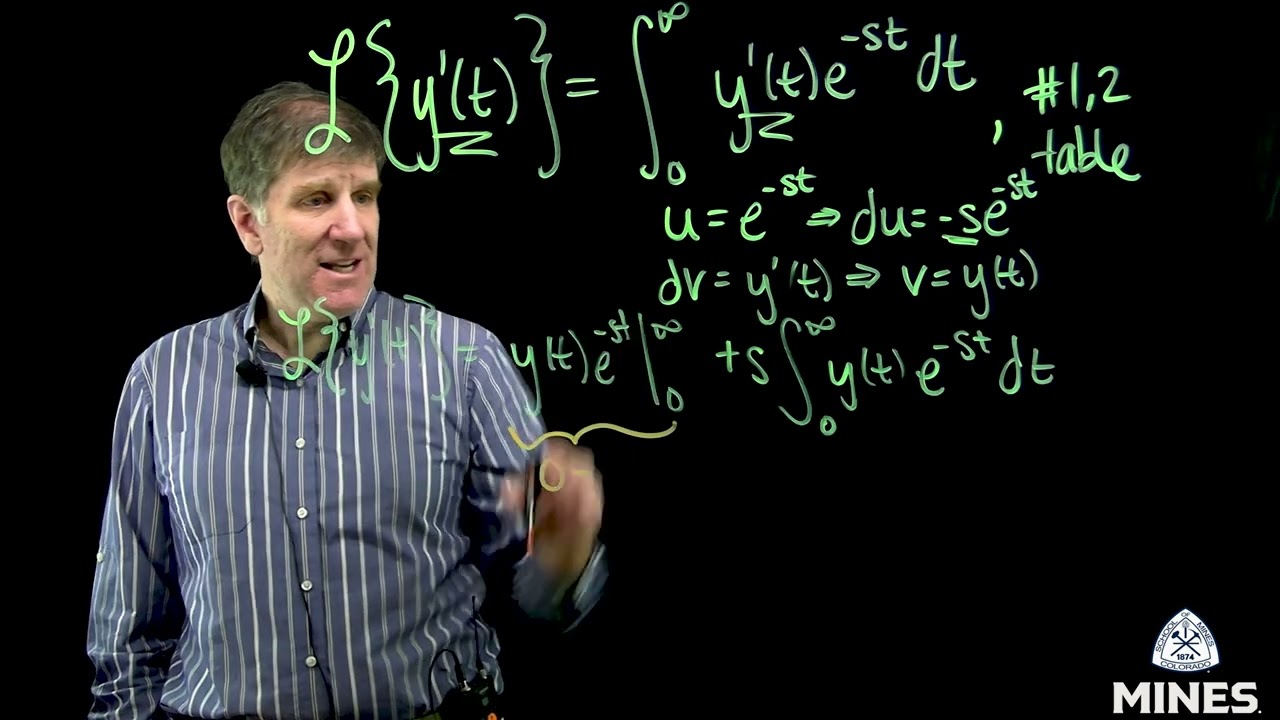 ℒ{y'(t)} = ∫₀^∞ y'(t)e^{-st} dt , #1,2
table
u = e^{-st} ⇒ du = -se^{-st}
dv = y'(t) ⇒ v = y(t)
ℒ{y'(t)} = y(t)e^{-st}|₀^∞ + s∫₀^∞ y(t) e^{-st} dt
0 -
SCHOOL OF MINES
1874
COLORADO
MINES.